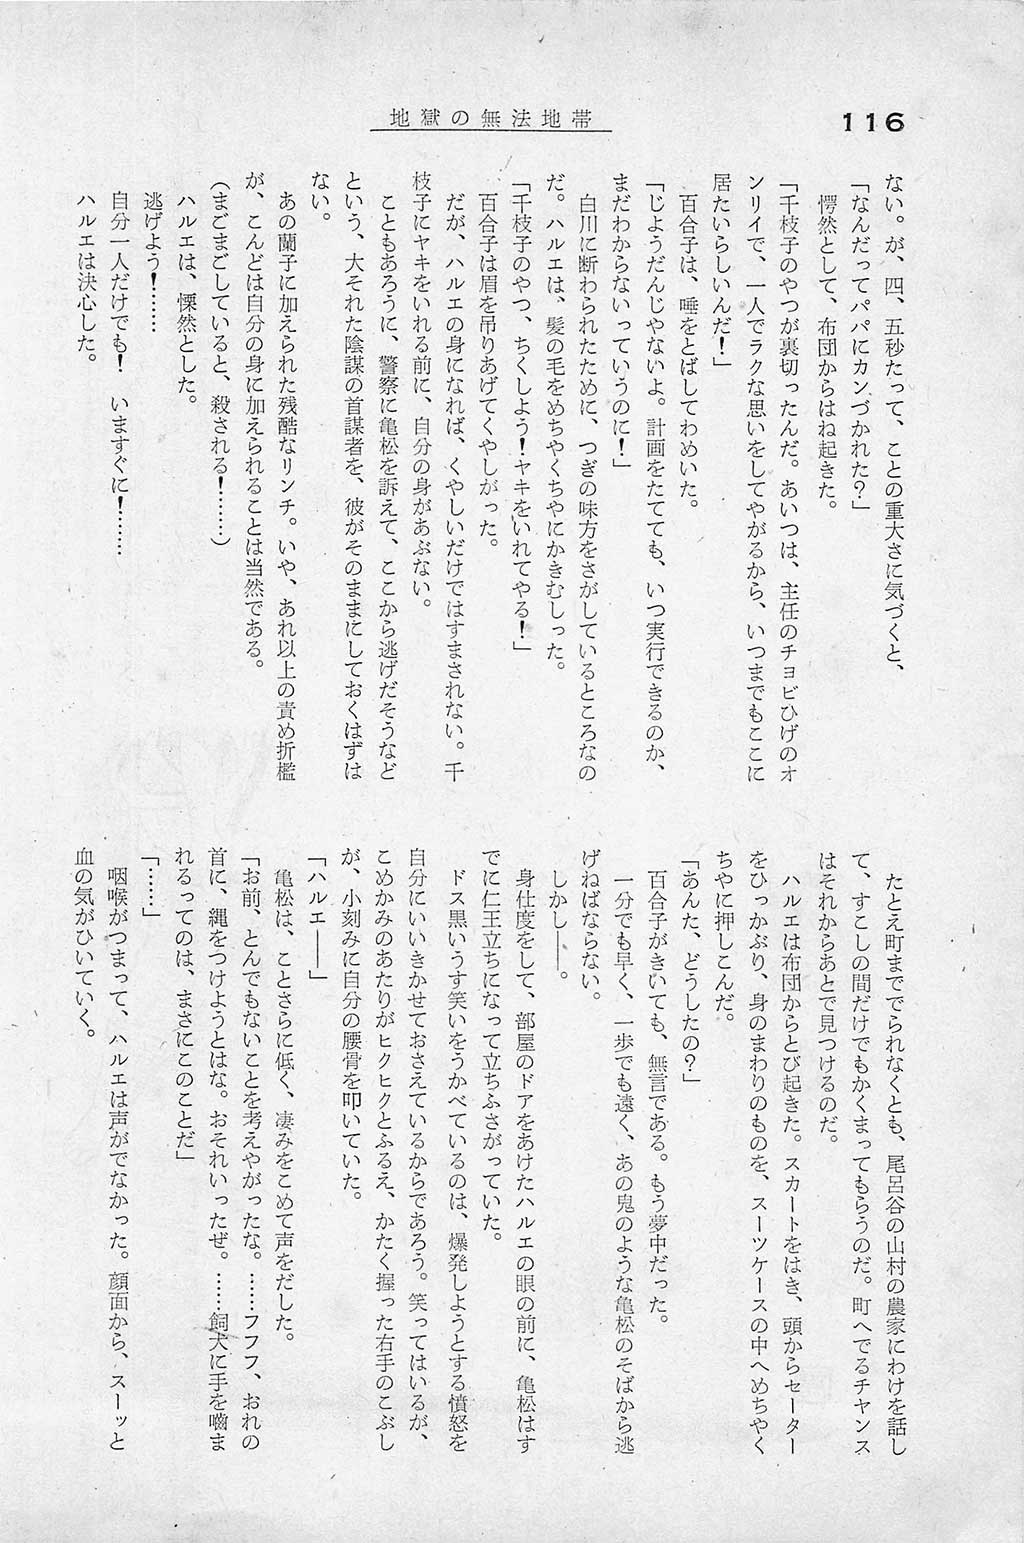 116
地獄の無法地帯
ない。が、四、五秒たって、ことの重大さに気づくと、
「なんだってパパにカンづかれた?」
愕然として、布団からはね起きた。
「千枝子のやつが裏切ったんだ。あいつは、主任のチョビひげのオ
ンリイで、一人でラクな思いをしてやがるから、いつまでもここに
居たいらしいんだ!」
百合子は、唾をとばしてわめいた。
「じようだんじゃないよ。計画をたてても、いつ実行できるのか、
まだわからないっていうのに!」
白川に断わられたために、つぎの味方をさがしているところなの
だ。ハルエは、髪の毛をめちやくちやにかきむしった。
「千枝子のやつ、ちくしよう!ヤキをいれてやる!」
百合子は眉を吊りあげてくやしがった。
だが、ハルエの身になれば、くやしいだけではすまされない。千
枝子にヤキをいれる前に、自分の身があぶない。
こともあろうに、警察に亀松を訴えて、ここから逃げだそうなど
という、大それた陰謀の首謀者を、彼がそのままにしておくはずは
ない。
あの蘭子に加えられた残酷なリンチ。いや、あれ以上の責め折檻
が、こんどは自分の身に加えられることは当然である。
(まごまごしていると、殺される!………)
ハルエは、慄然とした。
逃げよう!……
自分一人だけでも! いますぐに!……
ハルエは決心した。
たとえ町まででられなくとも、尾呂谷の山村の農家にわけを話し
て、すこしの間だけでもかくまってもらうのだ。町へでるチャンス
はそれからあとで見つけるのだ。
ハルエは布団からとび起きた。スカートをはき、頭からセーター
をひっかぶり、身のまわりのものを、スーツケースの中へめちやく
ちやに押しこんだ。
「あんた、どうしたの?」
百合子がきいても、無言である。もう夢中だった。
一分でも早く、一歩でも遠く、あの鬼のような亀松のそばから逃
げねばならない。
しかし――。
身仕度をして、部屋のドアをあけたハルエの眼の前に、亀松はす
でに仁王立ちになって立ちふさがっていた。
ドス黒いうす笑いをうかべているのは、爆発しようとする憤怒を
自分にいいきかせておさえているからであろう。笑ってはいるが、
こめかみのあたりがヒクヒクとふるえ、かたく握った右手のこぶし
が、小刻みに自分の腰骨を叩いていた。
「ハルエ――」
亀松は、ことさらに低く、凄みをこめて声をだした。
「お前、とんでもないことを考えやがったな。……フフフ、おれの
首に、縄をつけようとはな。おそれいったぜ。……飼犬に手を噛ま
れるってのは、まさにこのことだ」
「……」
咽喉がつまって、ハルエは声がでなかった。顔面から、スーッと
血の気がひいていく。